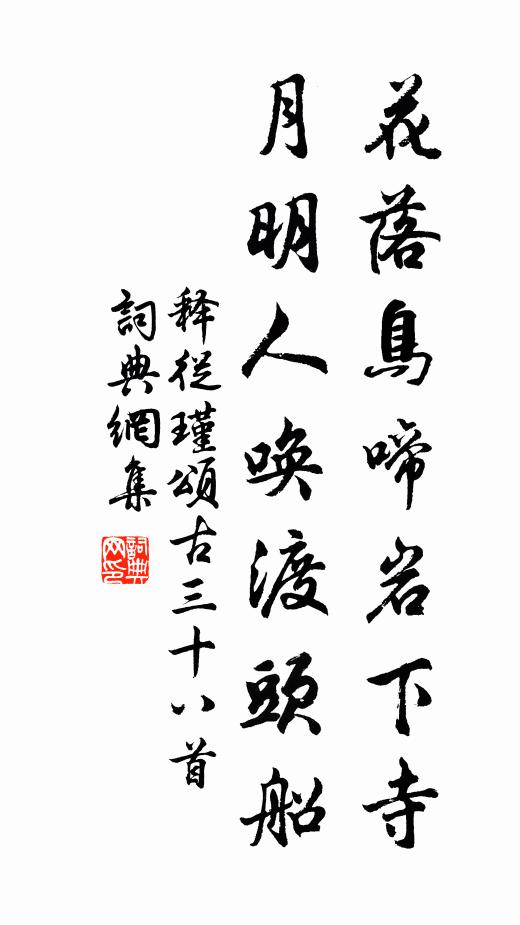 花落鳥啼岩下寺
月明人喚渡頭船
释從瑾頌古三十八首
詞典網集
詞典網印